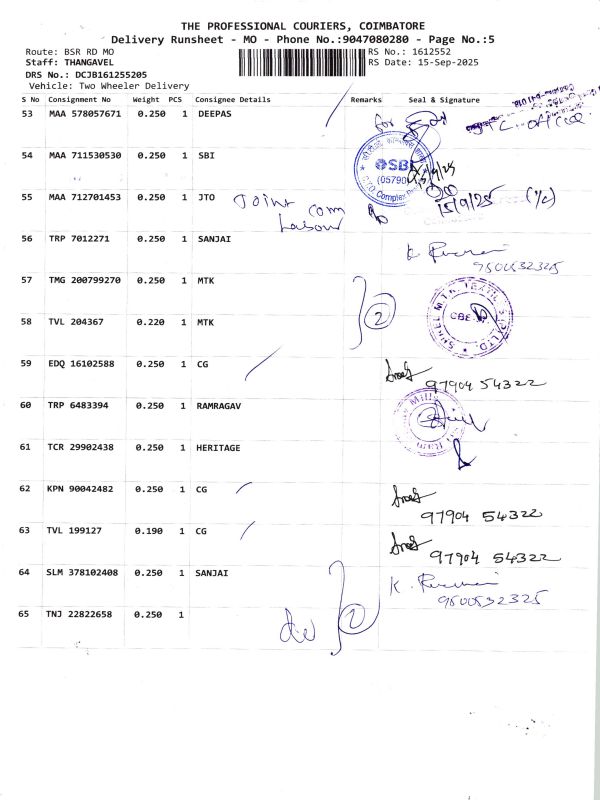 THE PROFESSIONAL COURIERS, COIMBATORE
Delivery Runsheet - MO - Phone No.:9047080280 - Page No.:5
Route: BSR RD MO
RS No.: 1612552
Staff: THANGAVEL
RS Date: 15-Sep-2025
DRS No.: DCJB161255205
Vehicle: Two Wheeler Delivery
S No Consignment No Weight PCS Consignee Details Remarks Seal & Signature
53 MAA 578057671 0.250 1 DEEPAS for
54 MAA 711530530 0.250 1 SBI
SBI
(05790
Complex
55 MAA 712701453 0.250 1 JTO Joint Com
Labour
15/9/25
56 TRP 7012271 0.250 1 SANJAI K
9500532325
57 TMG 200799270 0.250 1 MTK
2
58 TVL 204367 0.220 1 MTK
CBE
59 EDQ 16102588 0.250 1 CG
97904 54322
60 TRP 6483394 0.250 1 RAMRAGAV
61 TCR 29902438 0.250 1 HERITAGE
62 KPN 90042482 0.250 1 CG
97904 54322
63 TVL 199127 0.190 1 CG
97904 54322
64 SLM 378102408 0.250 1 SANJAI K.
9500532325
65 TNJ 22822658 0.250 1